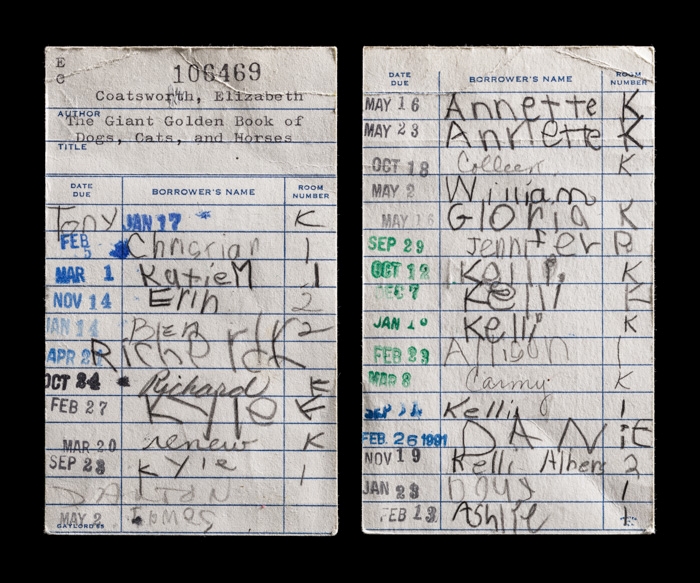 E
C
106469
Coatsworth, Elizabeth
AUTHOR
The Giant Golden Book of
Dogs, Cats, and Horses
TITLE
DATE DUE BORROWER'S NAME ROOM NUMBER
Tony JAN 17 K
FEB 5 Christian 1
MAR 1 Katie M 1
NOV 14 Erin 2
JAN 14 Ben 2
APR Richard K
OCT 24 Richard
FEB 27 Kyle K
MAR 20 renew K
SEP 28 Kyle 1
DALTON
MAY 2 James
GAYLORD
DATE DUE BORROWER'S NAME ROOM NUMBER
MAY 16 Annette K
MAY 23 Annette K
OCT 18 Colleen K
MAY 2 William
MAY 16 Gloria K
SEP 29 Jennifer
OCT 12 Kelli K
DEC 7 Kelli
JAN Kelli K
FEB Allison 1
MAR 8 Carmy K
SEP Kelli 1
FEB. 26 1991 DAN
NOV 19 Kelli Albers 2
JAN 23 1
FEB 13 Ashlie 1